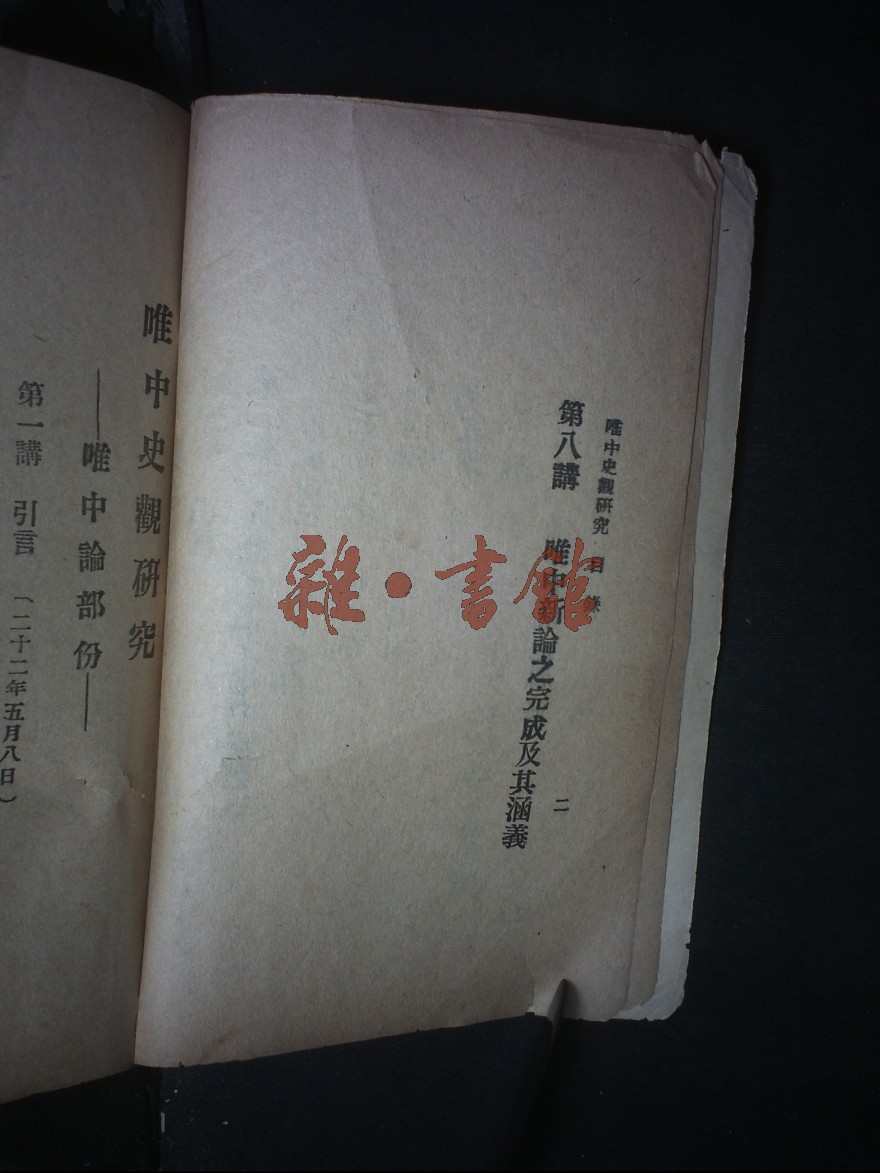 唯中史觀研究 目錄
二
第八講 唯中新論之完成及其涵義
唯中史觀研究
——唯中論部份——
第一講 引言 (二十二年五月八日)
雜·書館